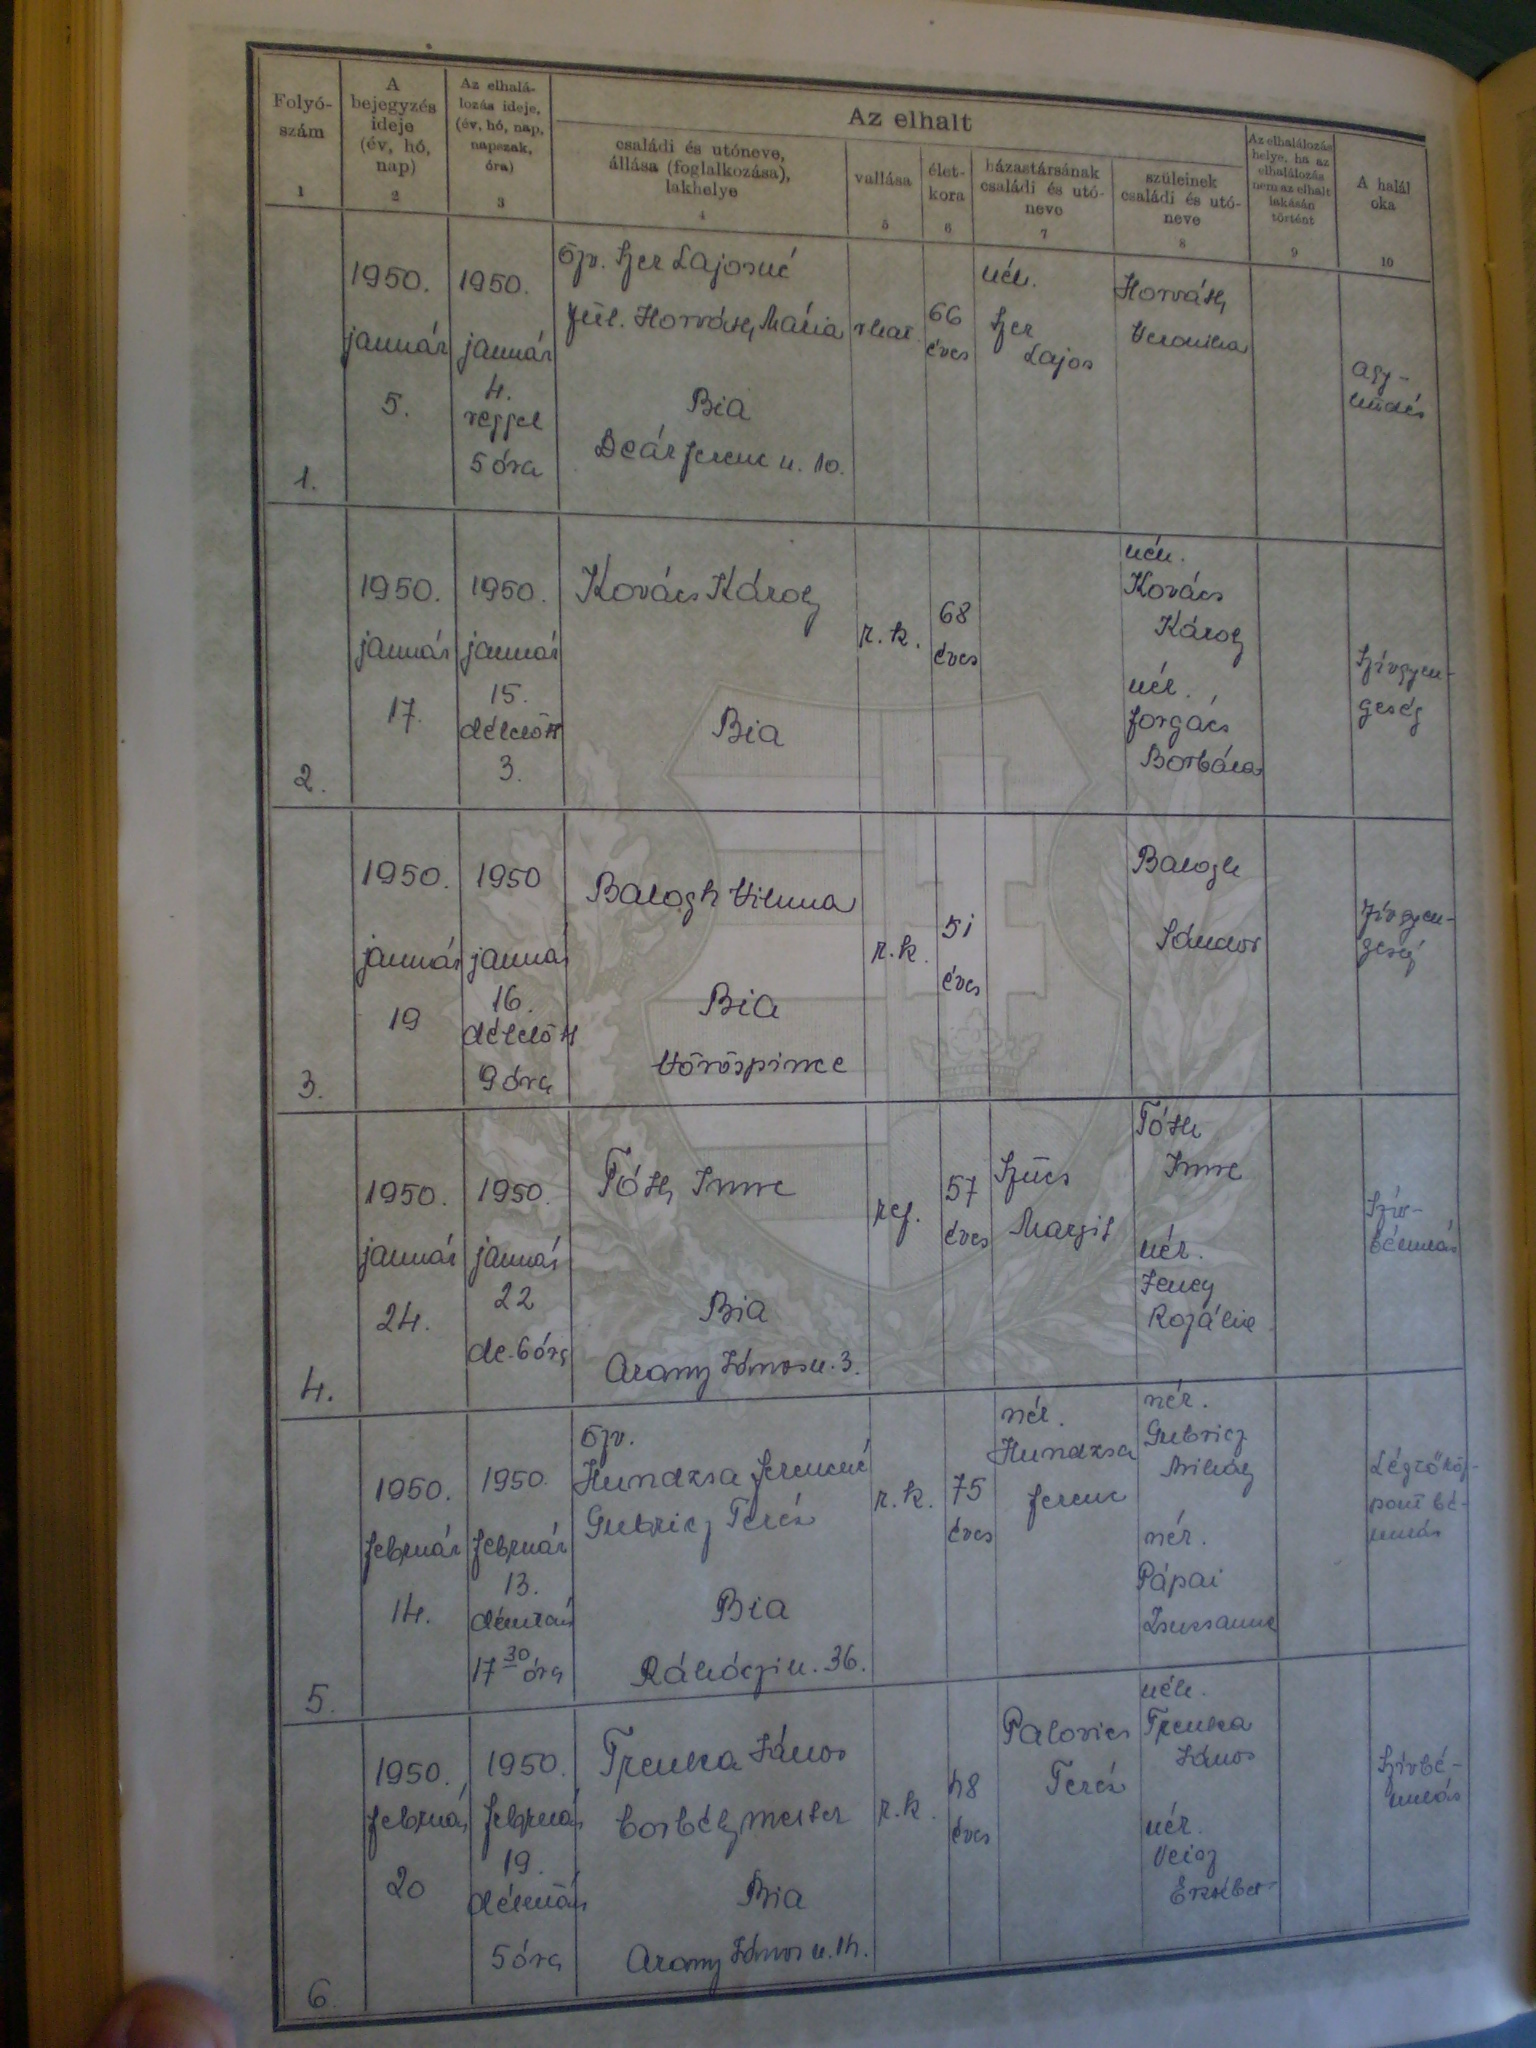 Folyó-
szám
1
A
bejegyzés
ideje
(év, hó,
nap)
2
Az elhalá-
lozás ideje,
(év, hó, nap,
napszak,
óra)
3
Az elhalt
családi és utóneve,
állása (foglalkozása),
lakhelye
4
vallása
5
élet-
kora
6
házastársának
családi és utó-
neve
7
szüleinek
családi és utó-
neve
8
Az elhalálozás
helye, ha az
elhalálozás
nem az elhalt
lakásán
történt
9
A halál
oka
10
1.
1950.
január
5.
1950.
január
4.
reggel
5 óra
özv. Szer Lajosné
szül. Horváth Mária
Bia
Deák Ferenc u. 10.
66
éves
néh.
Szer
Lajos
Horváth
Veronika
agy-
hűdés
2.
1950.
január
17.
1950.
január
15.
délelőtt
3.
Kovács Károly
Bia
r. k.
68
éves
néh.
Kovács
Károly
néh.
Forgács
Borbála
Szívgyen-
geség
3.
1950.
január
19
1950
január
16.
délelőtt
9 óra
Balogh Vilma
Bia
Vöröspince
r. k.
51
éves
Balogh
Sándor
Szívgyen-
geség
4.
1950.
január
24.
1950.
január
22
de. 6 óra
Tóth Imre
Bia
Arany János u. 3.
ref.
57
éves
Szűcs
Margit
Tóth
Imre
néh.
Rozália
Szív-
bénulás
5.
1950.
február
14.
1950.
február
13.
délután
17 30 óra
özv.
Hundzsa Ferencné
Gubricz Teréz
Bia
Rákóczi u. 36.
r. k.
75
éves
néh.
Hundzsa
Ferenc
néh.
Gubricz
Mihály
néh.
Pápai
Zsuzsanna
Légzőköz-
pont bé-
nulás
6.
1950.
február
20
1950.
február
19.
délután
5 óra
Trenka János
borbély mester
Bia
Arany János u. 14.
r. k.
48
éves
Palovics
Teréz
néh.
Trenka
János
néh.
Erzsébet
Szívbé-
nulás